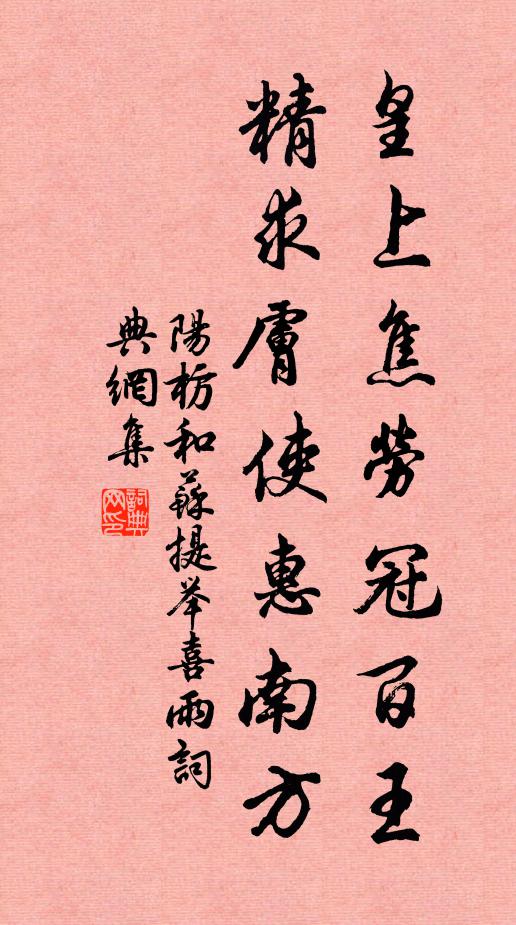 皇上焦勞冠百王
精求膚使惠南方
陽枋和蘇提举喜雨詞
典網集
詞典網印